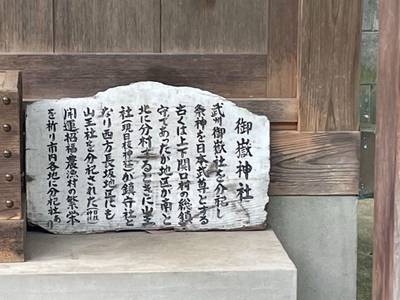 御嶽神社
武州御嶽社を分祀し
祭神を日本武尊とする
古くは上下関口村の総鎮
守であったが地区が南と
北に分村するときに山王
社(現日枝神社)が鎮守社と
なり西方長坂地区にも
山王社を分祀された
開運招福農漁村の繁栄
を祈り市内各地に分祀社あり